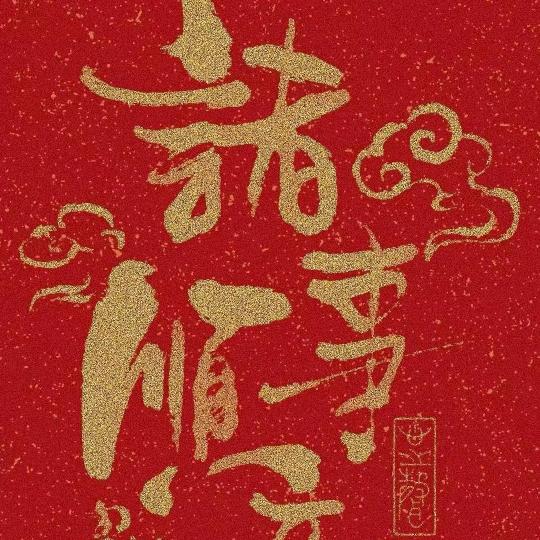 諸
事
順